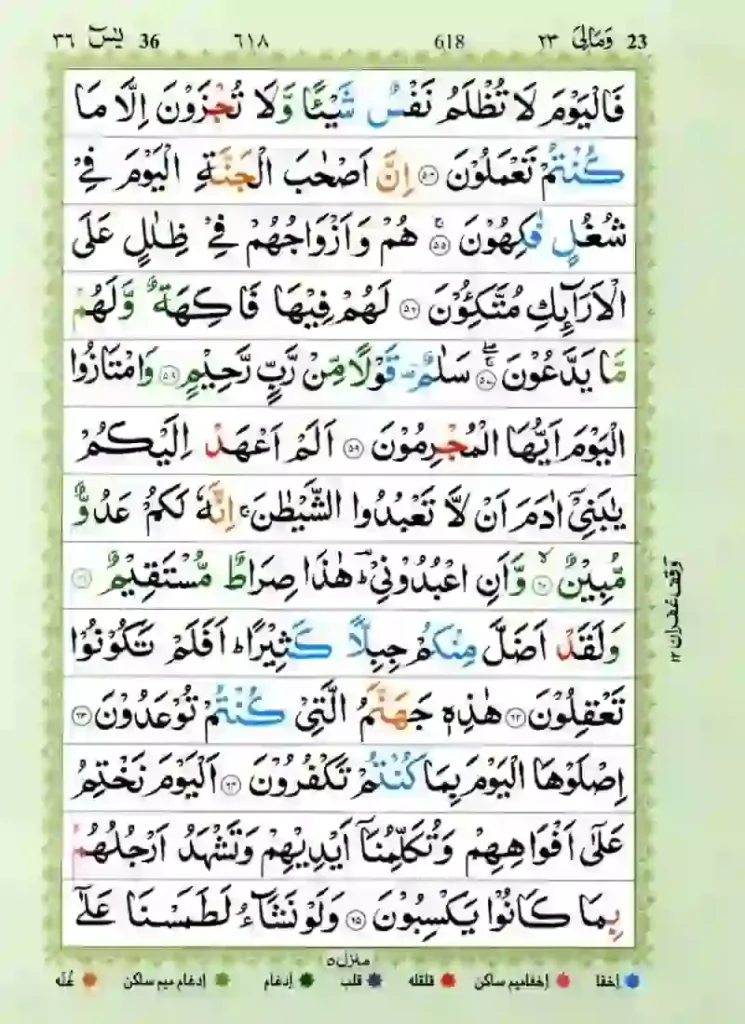 23 وَمَالِیَ ٢٣ 618 ٦١٨ 36 یٰسٓ ٣٦
فَالْیَوْمَ لَا تُظْلَمُ نَفْسٌ شَیْـًٔا وَّلَا تُجْزَوْنَ اِلَّا مَا
كُنْتُمْ تَعْمَلُوْنَ ۝٥٤ اِنَّ اَصْحٰبَ الْجَنَّةِ الْیَوْمَ فِیْ
شُغُلٍ فٰكِهُوْنَ ۝٥٥ۚ هُمْ وَاَزْوَاجُهُمْ فِیْ ظِلٰلٍ عَلَی
الْاَرَآىِٕكِ مُتَّكِـُٔوْنَ ۝٥٦ لَهُمْ فِیْهَا فَاكِهَةٌ وَّلَهُمْ
مَّا یَدَّعُوْنَ ۝٥٧ۚۖ سَلٰمٌ ۫ قَوْلًا مِّنْ رَّبٍّ رَّحِیْمٍ ۝٥٨ وَامْتَازُوا
الْیَوْمَ اَیُّهَا الْمُجْرِمُوْنَ ۝٥٩ اَلَمْ اَعْهَدْ اِلَیْكُمْ
یٰبَنِیْۤ اٰدَمَ اَنْ لَّا تَعْبُدُوا الشَّیْطٰنَ ۚ اِنَّهٗ لَكُمْ عَدُوٌّ
مُّبِیْنٌ ۝٦٠ۙ وَّاَنِ اعْبُدُوْنِیْ ؔؕ هٰذَا صِرَاطٌ مُّسْتَقِیْمٌ ۝٦١
وَلَقَدْ اَضَلَّ مِنْكُمْ جِبِلًّا كَثِیْرًا ؕ اَفَلَمْ تَكُوْنُوْا
تَعْقِلُوْنَ ۝٦٢ هٰذِهٖ جَهَنَّمُ الَّتِیْ كُنْتُمْ تُوْعَدُوْنَ ۝٦٣
اِصْلَوْهَا الْیَوْمَ بِمَا كُنْتُمْ تَكْفُرُوْنَ ۝٦٤ اَلْیَوْمَ نَخْتِمُ
عَلٰۤی اَفْوَاهِهِمْ وَتُكَلِّمُنَاۤ اَیْدِیْهِمْ وَتَشْهَدُ اَرْجُلُهُمْ
بِمَا كَانُوْا یَكْسِبُوْنَ ۝٦٥ وَلَوْ نَشَآءُ لَطَمَسْنَا عَلٰۤی
وَقف غفران ١٢
منزل ٥
إخفا إخفامیم ساکن قلقله قلب إدغام إدغام میم ساکن غُنّه